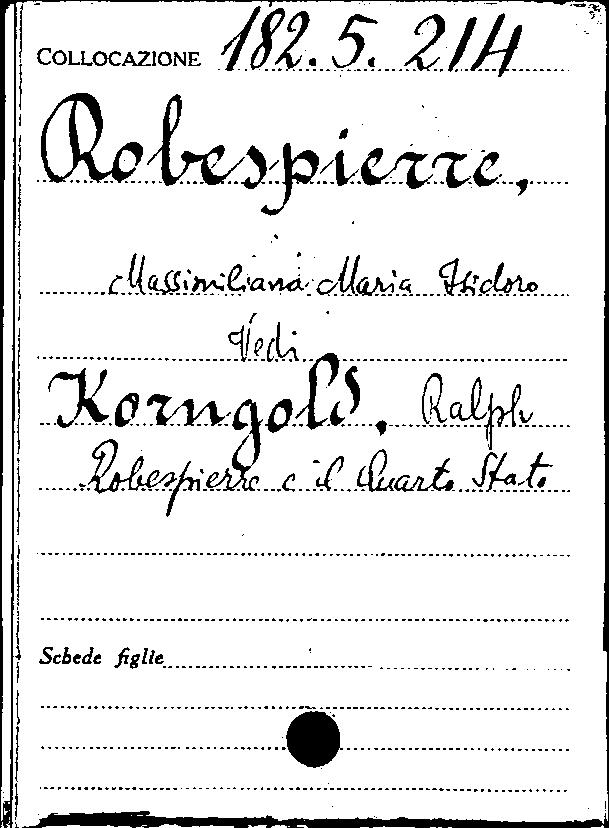 COLLOCAZIONE 182.5.214
Robespierre,
Massimiliana Maria Isidoro
Vedi
Korngold, Ralph
Robespierre e il Quarto Stato
Schede figlie